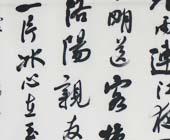 雨連江夜
明送客楚
洛陽親友
一片冰心在玉